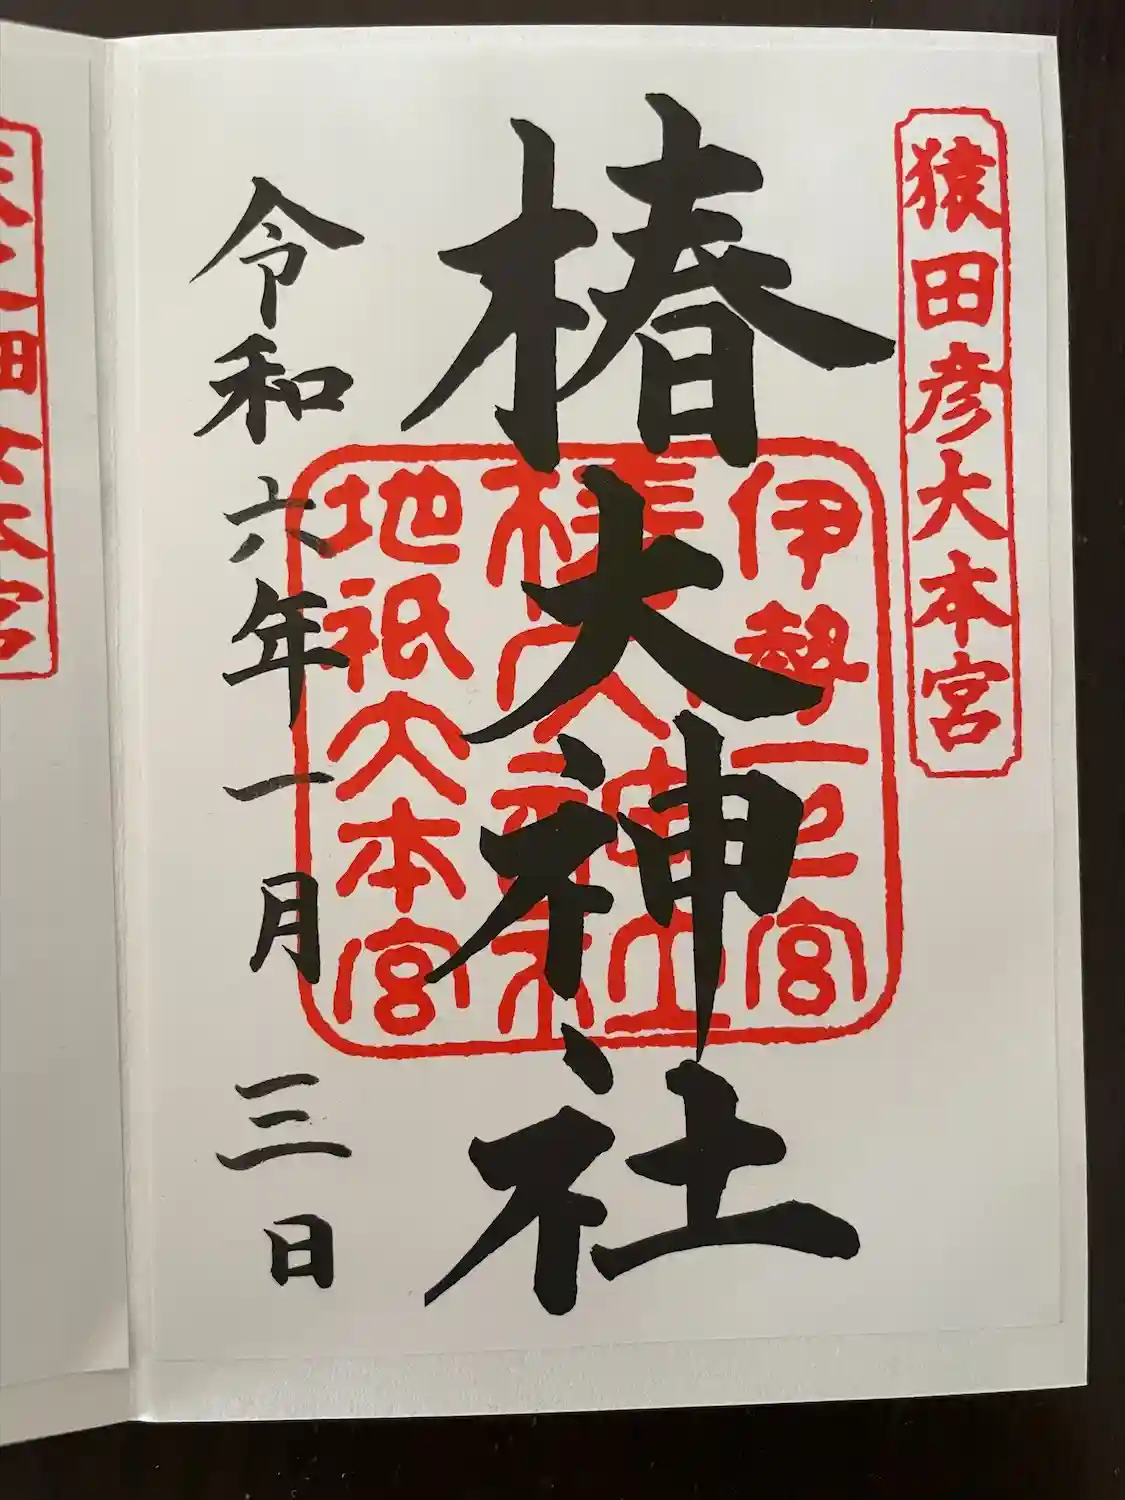 猿田彦大本宮
伊勢一之宮
椿大神社
地祇大本宮
椿大神社
令和六年一月三日